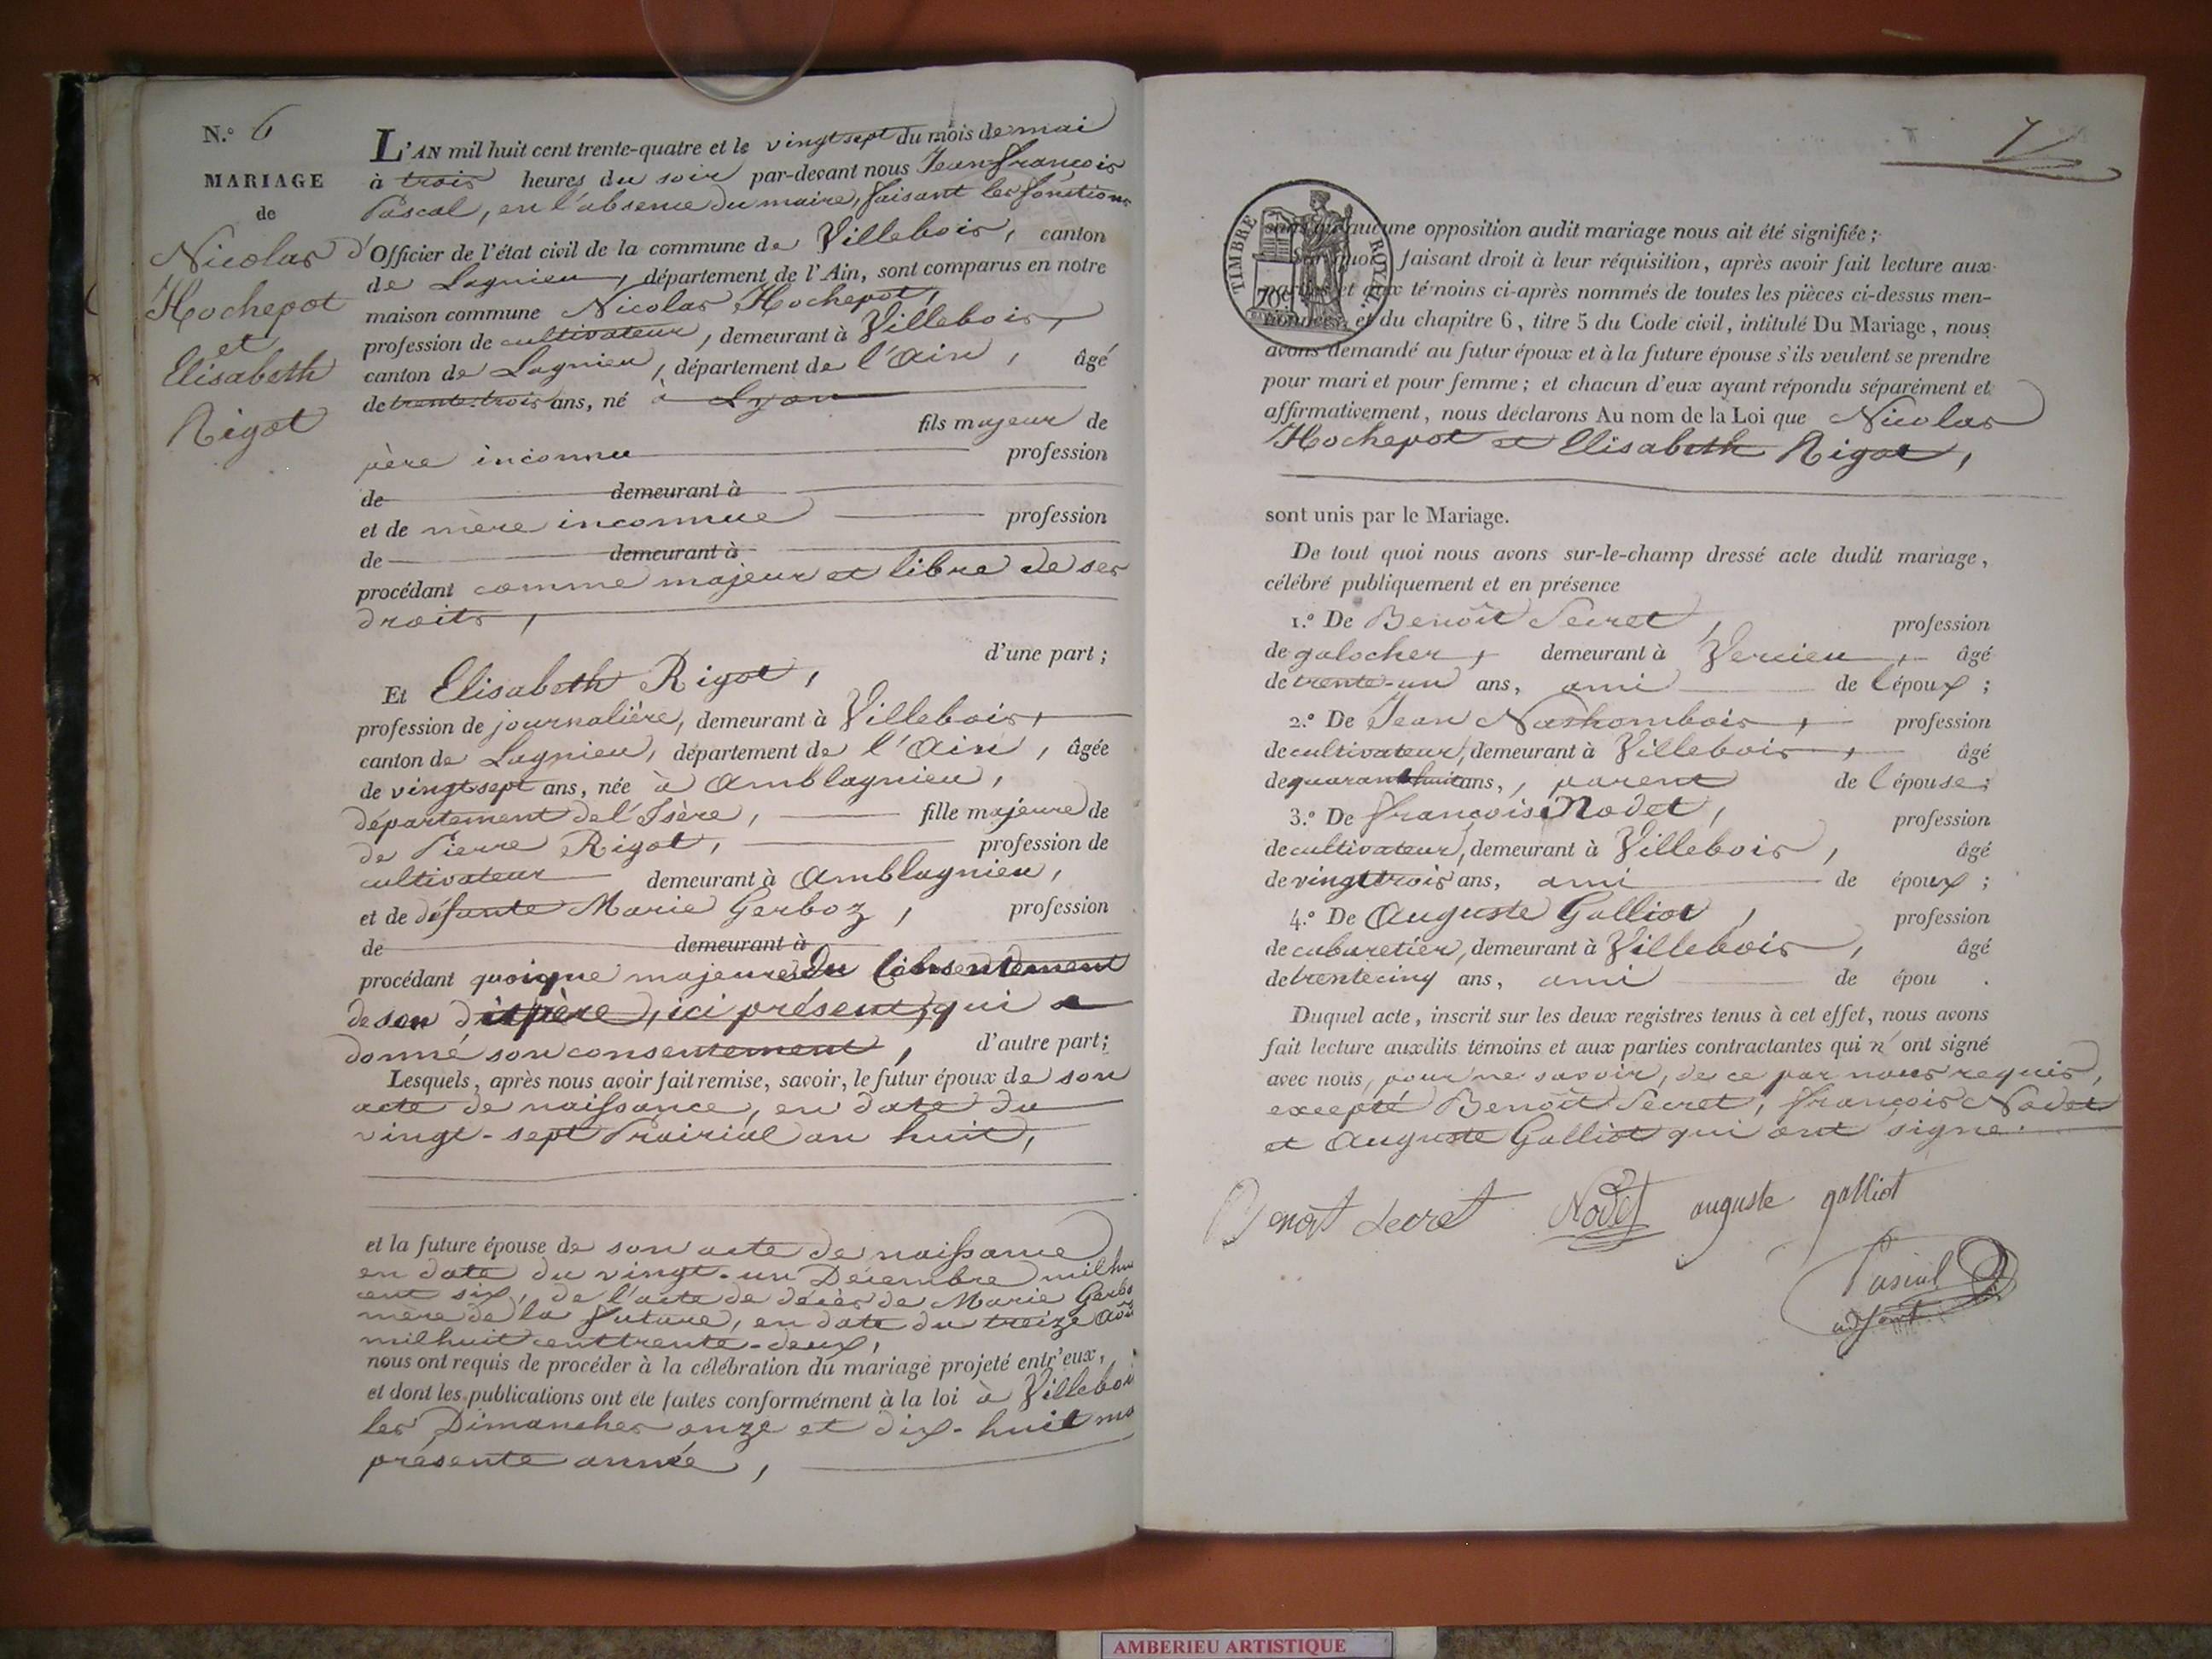 N.º 6
MARIAGE
de
Nicolas
Hochepot
et
Elisabeth
Rigot
L'AN mil huit cent trente-quatre et le vingt sept du mois de mai
à trois heures du soir par-devant nous Jean François
Pascal, en l'absence du maire, faisant les fonctions
d'Officier de l'état civil de la commune de Villebois, canton
de Lagnieu, département de l'Ain, sont comparus en notre
maison commune Nicolas Hochepot,
profession de cultivateur, demeurant à Villebois,
canton de Lagnieu, département de l'Ain, âgé
de trente-trois ans, né à Lyon
fils majeur de
père inconnu profession
de demeurant à
et de mère inconnue profession
de demeurant à
procédant comme majeur et libre de ses
droits,
d'une part;
Et Elisabeth Rigot,
profession de journalière, demeurant à Villebois,
canton de Lagnieu, département de l'Ain, âgée
de vingt sept ans, née à Amblagnieu,
département de l'Isère, fille majeure de
de Pierre Rigot, profession de
cultivateur demeurant à Amblagnieu,
et de défunte Marie Gerboz, profession
de demeurant à
procédant quoique majeure du consentement
de son dit père, ici présent, qui a
donné son consentement, d'autre part;
Lesquels, après nous avoir fait remise, savoir, le futur époux de son
acte de naissance, en date du
vingt-sept Prairial an huit,
et la future épouse de son acte de naissance
en date du vingt-un Décembre mil hui
cent six, de l'acte de décès de Marie Gerbo
mère de la future, en date du treize Aoû
mil huit cent trente-deux,
nous ont requis de procéder à la célébration du mariage projeté entr'eux,
et dont les publications ont été faites conformément à la loi à Villeboi
les Dimanches onze et dix-huit ma
présente année,
7
TIMBRE ROYAL
70c
sans qu'aucune opposition audit mariage nous ait été signifiée;
Sur quoi, faisant droit à leur réquisition, après avoir fait lecture aux
parties et aux témoins ci-après nommés de toutes les pièces ci-dessus men-
tionnées, et du chapitre 6, titre 5 du Code civil, intitulé Du Mariage, nous
avons demandé au futur époux et à la future épouse s'ils veulent se prendre
pour mari et pour femme; et chacun d'eux ayant répondu séparément et
affirmativement, nous déclarons Au nom de la Loi que Nicolas
Hochepot et Elisabeth Rigot,
sont unis par le Mariage.
De tout quoi nous avons sur-le-champ dressé acte dudit mariage,
célébré publiquement et en présence
1.º De Benoît Secret, profession
de galocher, demeurant à Vercieu, âgé
de trente-un ans, ami de l'époux;
2.º De Jean profession
de cultivateur, demeurant à Villebois, âgé
de quarante huit ans, parent de l'épouse;
3.º De François Nodet, profession
de cultivateur, demeurant à Villebois, âgé
de vingt trois ans, ami de époux;
4.º De Auguste Galliot, profession
de cabaretier, demeurant à Villebois, âgé
de trente cinq ans, ami de épou .
Duquel acte, inscrit sur les deux registres tenus à cet effet, nous avons
fait lecture auxdits témoins et aux parties contractantes qui n'ont signé
avec nous, pour ne savoir, de ce par nous requis,
excepté Benoît Secret, François Nodet
et Auguste Galliot qui ont signé.
Benoit Secret Nodet auguste galliot
Pascal
adjoint
AMBERIEU ARTISTIQUE